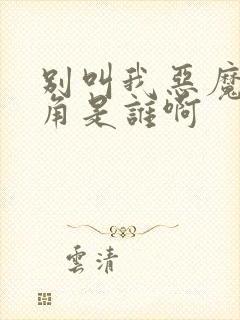 别叫我惡魔
角是誰啊
雲清